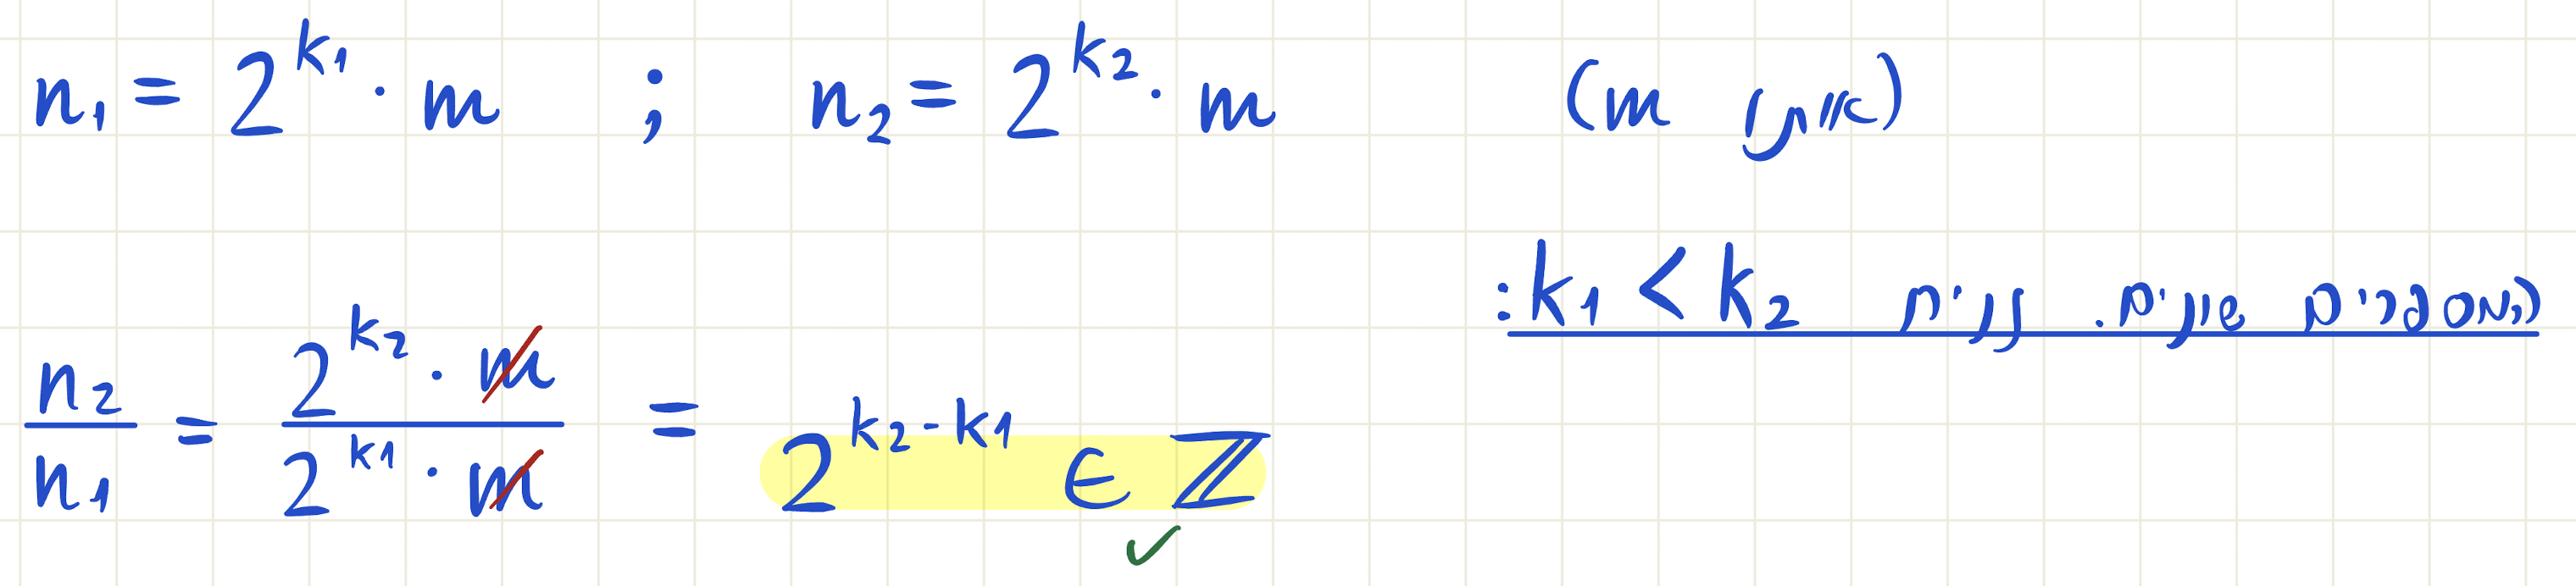 n₁ = 2^k₁ · m ; n₂ = 2^k₂ · m (אותו m)
המספרים שונים. נניח k₁ < k₂:
n₂/n₁ = (2^k₂ · m)/(2^k₁ · m) = 2^(k₂-k₁) ∈ ℤ
✓